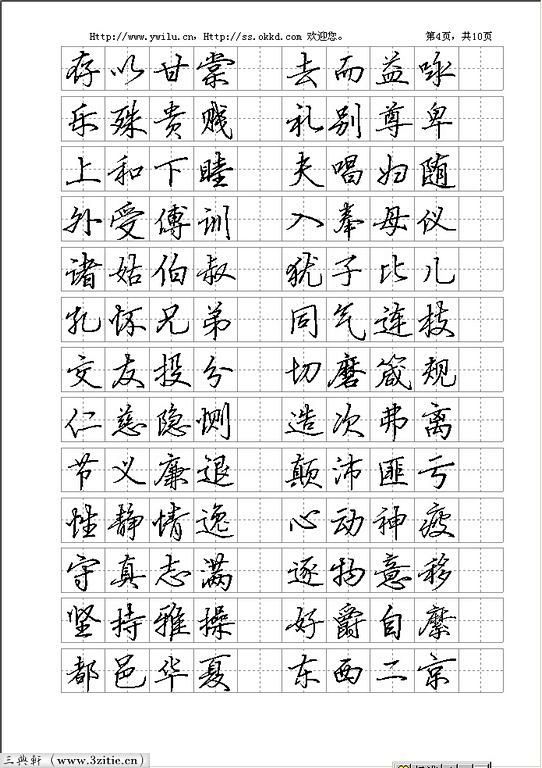 Http://www.ywilu.cn, Http://ss.okkd.com 欢迎您。 第4页，共10页
存以甘棠 去而益咏
乐殊贵贱 礼别尊卑
上和下睦 夫唱妇随
外受傅训 入奉母仪
诸姑伯叔 犹子比儿
孔怀兄弟 同气连枝
交友投分 切磨箴规
仁慈隐恻 造次弗离
节义廉退 颠沛匪亏
性静情逸 心动神疲
守真志满 逐物意移
坚持雅操 好爵自縻
都邑华夏 东西二京
三典轩（www.3zitie.cn）